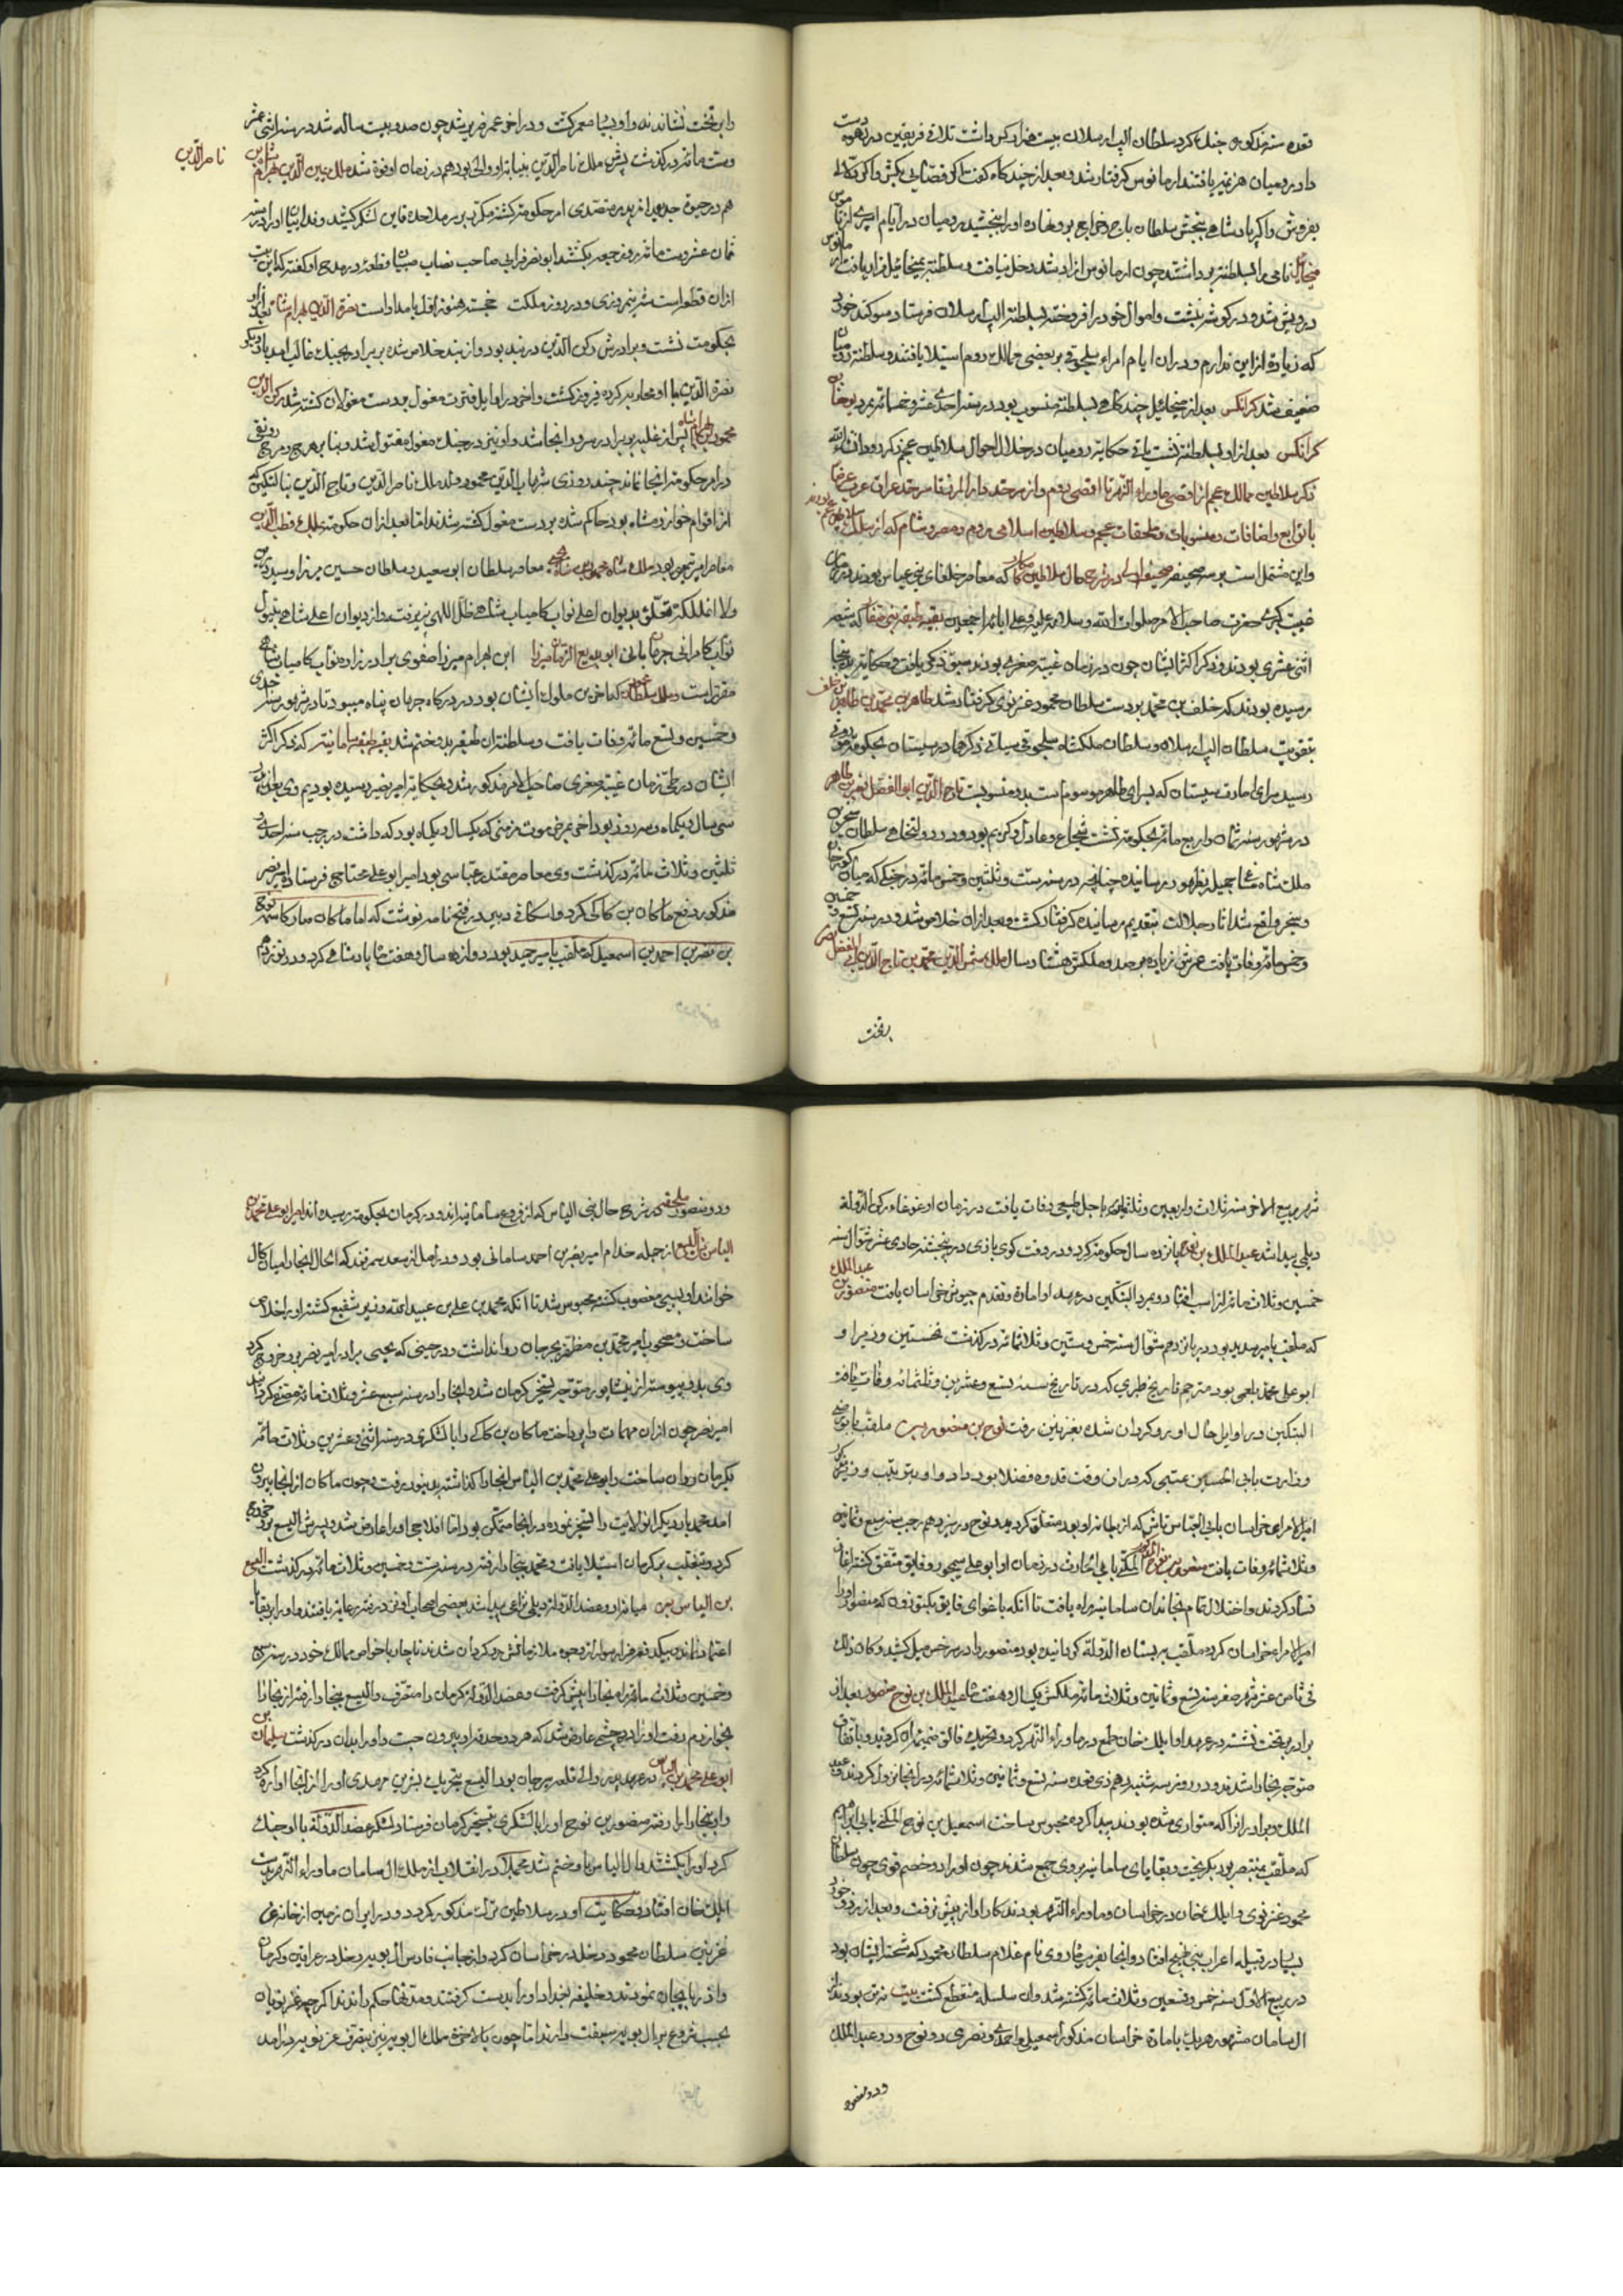 قعده سنه مذکوره جنک کرد سلطان الب ارسلان بیست هزار کس داشت تلاقی فریقین در زهوه دست
داد رومیان هزیمت یافتند ارمانوس کرفتار شد و بعد از چند کاه کفت که اکر قصابی بکش و اکر دلالی
بفروش و اکر پادشاهی ببخش سلطان باج و خراج برو نهاده او را بخشید رومیان در ایام اسیری ارمانوس
میخائیل نامی را بسلطنت برداشتند چون ارمانوس ازاد شد دخل نیافت و سلطنت بمیخائیل قرار یافت ارمانوس
درویش شد و در کوشه نشست و اموال خود را فروخته بسلطان الب ارسلان فرستاد و سوکند خورد
که زیاده ازین ندارم و در ان ایام امراء سلجوقی بر بعضی ممالک روم استیلا یافتند و سلطنت رومیان
ضعیف شد کرانکس بعد از میخائیل چند کاهی بسلطنت منسوب بود در سنه احدی عشر و خمسمائه بمرد یوحنا بن
کرانکس بعد از او بسلطنت نشست باقی حکایت رومیان در خلال احوال سلاطین عجم ذکر کرده ان شاء الله
ذکر سلاطین ممالک عجم از اقصی ماوراء النهر تا اقصی روم و از سرحد دار المرز تا سرحد عراق عرب
با توابع و اضافات و منسوبات و ملحقات عجم و سلاطین اسلامی روم و مصر و شام که از
و این مشتمل است بر سه صحیفه صحیفه اولی در شرح حال سلاطین که معاصر خلفای بنی عباس بودند در زمان
غیبت کبری حضرت صاحب الامر صلوات الله و سلامه علیه و علی ابائه اجمعین بقیه طبقه بنی صفار که شیعه
اثنی عشری بودند و ذکر اکثر ایشان چون در زمان غیبت صغری بودند سبق ذکر یافت و حکایت بدینجا
رسیده بودند که خلف بن محمد بر دست سلطان محمود غزنوی کرفتار شد طاهر بن محمد بن طاهر بن خلف
بتقویت سلطان الب ارسلان و سلطان ملکشاه سلجوقی سیاتی ذکرهما در سیستان بحکومت موروثی
رسید سرای امارت سیستان که بسرای طاهر موسوم است بدو منسوبست تاج الدین ابو الفضل نصر بن طاهر
در شهور سنه ثمان و اربع مائه بحکومت نشست شجاع و عادل و کریم بود و در دولتخواهی سلطان سنجر بن
ملک شاه مساعی جمیل بظهور رسانیده چنانچه در سنه ست و ثلثین و خمس مائه در جنکی که میان کورخان
و سنجر واقع شد اثار جلالت بتقدیم رسانیده کرفتار کشت و بعد از ان خلاص شد و در سنه تسع و خمسین
و خمس مائه وفات یافت عمرش زیاده بر صد و ملکش هشتاد سال ملک شمس الدین محمد بن تاج الدین ابی الفضل نصر
بر تخت
را بر تخت نشاندند و او بسیار معمر کشت و در اخر عمر ضریر شد چون صد و بیست ساله شد در سنه اثنی عشر
و ست مائه در کذشت پسرش ملک ناصر الدین بنیابت او والی بود هم در زمان او فوت شد ملک یمین الدین بهرام شاه بن
ناصر الدین
هم در حیوة جد بعد از پدر متصدی امر حکومت کشته مکرر بر سر ملاحده قاین لشکر کشید و فداییان او را در سنه
ثمان عشر و ست مائه روز جمعه بکشتند ابو نصر فراهی صاحب نصاب صبیان قطعه در مدح او کفته که این بیت
از ان قطعه است شه نیمروزی و در روز ملکت خجسته هنوز اول بامداد است نصرة الدین بهرام شاه بعد از او
بحکومت نشست و برادرش رکن الدین در بند بود و از بند خلاص شده بر سر برادر بجنک غالب امد بار دیکر
نصرة الدین با او محاربه کرده فیروز کشت و اخر در اوایل فترت مغول بدست مغولان کشته شد رکن الدین
محمود بن بهرام شاه پس از غلبه بر برادر سرور انجا شد و او نیز در جنک مغول مقتول شد و بنا بر هرج و مرج رونقی
در امر حکومت انجا نماند چند روزی شهاب الدین محمود ولد ملک ناصر الدین و تاج الدین بنالتکین که
از اقوام خوارزمشاه بود حاکم شده بر دست مغول کشته شدند اما بعد از ان حکومت بملک قطب الدین
معاصر امیر تیمور بعد ملک شاه محمود بن شاه یحیی معاصر سلطان ابو سعید و سلطان حسین میرزا رسید
والا ان مملکت تعلق بدیوان اعلی نواب کامیاب شاهی ظل اللهی پذیرفت و از دیوان اعلی شاهی بتیول
نواب کامرانی جهانبانی ابو البدیع الزمان میرزا ابن بهرام میرزا صفوی برادرزاده نواب کامیاب شاهی
مقرر است و ملک سلطان محمود که اخرین ملوک ایشان بود در درکاه جهان پناه میبود تا در شهور سنه احدی
و خمسین و تسع مائه وفات یافت و سلطنت ان طبقه بدو ختم شد بقیه طبقه سامانیه که ذکر اکثر
ایشان در طی زمان غیبت صغری صاحب الامر مذکور شد و بحکایت امیر نصر رسیده بودیم وی بعد از
سی سال و یکماه و سه روز بود اخر بمرض موت مزمنی که یکسال و یکماه بود که داشت در رجب سنه احدی
ثلثین و ثلاث مائه در کذشت وی معاصر مقتدر عباسی بود امیر ابو علی محتاج فرستاده امیر نصر
مذکور بدفع ماکان بن کاکی کرد و اسکافی دبیر در فتح نامه نوشت که اما ماکان صار کاسمه نوح
بن نصر بن احمد بن اسمعیل که ملقب بامیر حمید بود دوازده سال و هفت ماه پادشاهی کرد و در نوزدهم
شهر ربیع الاخر سنه ثلاث و اربعین و ثلثمائه باجل طبیعی وفات یافت در زمان او غوغاء رکن الدوله
دیلمی پیدا شد عبد الملک بن نوح پانزده سال حکومت کرد و در وقت کوی بازی در پنجشنبه حادی عشر شوال سنه
خمسین و ثلاث مائه از اسب افتاد و بمرد البتکین در عهد او امارة و تقدم جیوش خراسان یافت منصور بن عبد الملک
که ملقب بامیر سدید بود در یازدهم شوال سنه خمس و ستین و ثلاثمائه در کذشت نخستین وزیر او
ابو علی محمد بلعمی بود مترجم تاریخ طبری که در تاریخ سنه تسع و عشرین و ثلثمائه وفات یافت
البتکین در اوایل حال او رو کردان شده بغزنین رفت نوح بن منصور ملقب بامیر رضی
وزارت بابی الحسین عتبی که در ان وقت قدوه فضلا بود داد و او بترتیب وزیر
امیر الامرای خراسان بابی العباس تاش که از ممالیک او بود متعلق کردید و نوح در سیزدهم رجب سنه سبع و ثمانین
و ثلاثمائه وفات یافت منصور بن نوح المکنی بابی الحارث در زمان او ابو علی سیمجور و فایق متفق کشته اغاز
فساد کردند و اختلال تمام بخاندان سامانیه راه یافت تا انکه باغوای فایق بکتوزون که منصور او را
امیر الامراء خراسان کرده ملقب بسنان الدوله کردانیده بود منصور را در سرخس میل کشید و کان ذلک
فی ثامن عشر شهر صفر سنه تسع و ثمانین و ثلاث مائه ملکش یکسال و هفت ماه عبد الملک بن نوح بن منصور بعد از
برادر بر تخت نشست در عهد او ایلک خان طمع در ماوراء النهر کرد و تحریک فایق ضمیمه ان کردید و باتفاق
متوجه بخارا شدند و در روز سه شنبه دهم ذی قعده سنه تسع و ثمانین و ثلاثمائه در انجا نزول کردند و عبد
الملک و برادران را که متواری شده بودند پیدا کرده محبوس ساخت اسمعیل بن نوح المکنی بابی ابراهیم
که ملقب بمنتصر بود بکریخت و بقایای سامانیه بر وی جمع شدند چون او را دو خصم قوی چون سلطان
محمود غزنوی و ایلک خان در خراسان و ماوراء النهر بودند کار او از پیش نرفت و بعد از تردد
بسیار در قبیله اعراب بنی بهیج افتاد و انجا بفرموده ماه روی نام غلام سلطان محمود که شحنه ایشان بود
در ربیع الاول سنه خمس و تسعین و ثلاث مائه کشته شد و ان سلسله منقطع کشت بیت نه تن بودند از
ال سامان مشهور هر یک بامارة خراسان مذکور اسمعیلی و احمدی و نصری دو نوح و دو عبد الملک
و دو منصور
و دو منصور ملحقی در شرح حال بنی الیاس که از فروع سامانیه اند و در کرمان بحکومت رسیده اند امیر ابو علی محمد بن
الیاس بن الیسع از جمله خدام امیر نصر بن احمد سامانی بود و در اصل از سغد سمرقند که الحال انجا را میان کال
خوانند او بسببی مغضوب کشته محبوس شد تا انکه محمد بن علی بن عبید الله وزیر شفیع کشته او را خلاص
ساخت و بصحوب امیر محمد بن مظفر بجرجان روانداشت و در حینی که یحیی برادر امیر نصر برو خروج کرد
وی بدو پیوسته از نیشابور متوجه تسخیر کرمان شد و انجا را در سنه سبع عشر و ثلاث مائه متصرف کردانید
امیر نصر چون از ان مهمات وا پرداخت ماکان بن کاکی را با لشکری در سنه اثنی و عشرین و ثلاث مائه
بکرمان روان ساخت و ابو علی محمد بن الیاس انجا را کذاشته بدینور رفت و چون ماکان از انجا بیرون
امد محمد بار دیکر ان ولایت را تسخیر نموده در انجا متمکن بود اما افلاجی او را عارض شد و پسرش الیسع برو خروج
کرد و بتغلب بر کرمان استیلا یافت و محمد ببخارا رفته در سنه ست و خمسین و ثلاث مائه در کذشت الیسع
بن الیاس میانه او و عضد الدوله دیلمی نزاعی پیدا شد بعضی اصحاب او نزد عضد رعایت یافتند و او را بر ایشان
اعتماد نماند و بیکدفعه هزار سوار از وجوه ملازمانش رو کردان شدند ناچار با خواص ممالک خود در سنه سبع
و خمسین و ثلاث مائه راه بخارا پیش کرفت و عضد الدوله کرمان را متصرف و الیسع ببخارا رفته از بخارا
بخوارزم رفت او را درد چشمی عارض شد که هر دو حدقه او بیرون جست و او را بدان در کذشت سلیمان بن
ابو علی محمد بن الیاس در عهد پدر والی قلعه سیرجان بود الیسع بتحریک بشر بن مهدی او را از انجا اواره کرد
و او ببخارا رفته منصور بن نوح او را با لشکری بتسخیر کرمان فرستاد لشکر عضد الدوله با او جنک
کرد او را بکشتند و ال الیاس باو ختم شد مجملا در انقلاب از ملک ال سامان ماوراء النهر بدست
ایلک خان افتاد و حکایت او در سلاطین ترک مذکور کردد و در ایران زمین از خانه
غزنین سلطان محمود دخل در خراسان کرد و از جانب فارس ال بویه دخل در عراقین و کرمان
و اذربایجان نمودند و خلیفه بغداد او را بدست کرفتند و مدتها حکم راندند اکر چه غزنویان
بحسب شروع بر ال بویه سبقت دارند اما چون بالاخره ملک ال بویه نیز بتصرف غزنویه درامد